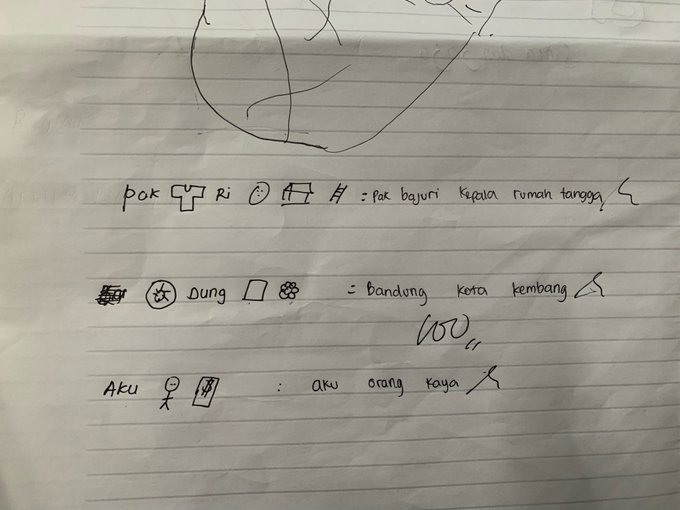 pak Ri : pak bajuri kepala rumah tangga
Dung = Bandung kota kembang
100
AKU $ : aku orang kaya